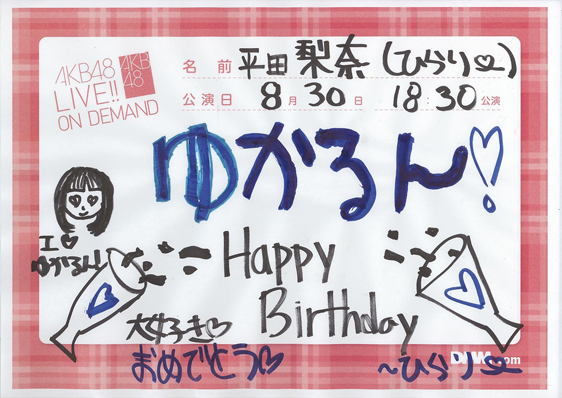 AKB48
LIVE!!
ON DEMAND
AKB
48
名前 平田梨奈(ひらりー♡)
公演日 8月30日 18:30公演
ゆかるん♡!
I♡
ゆかるん!
Happy
Birthday
大好き♡
おめでとう♡
〜ひらりー♡
.com